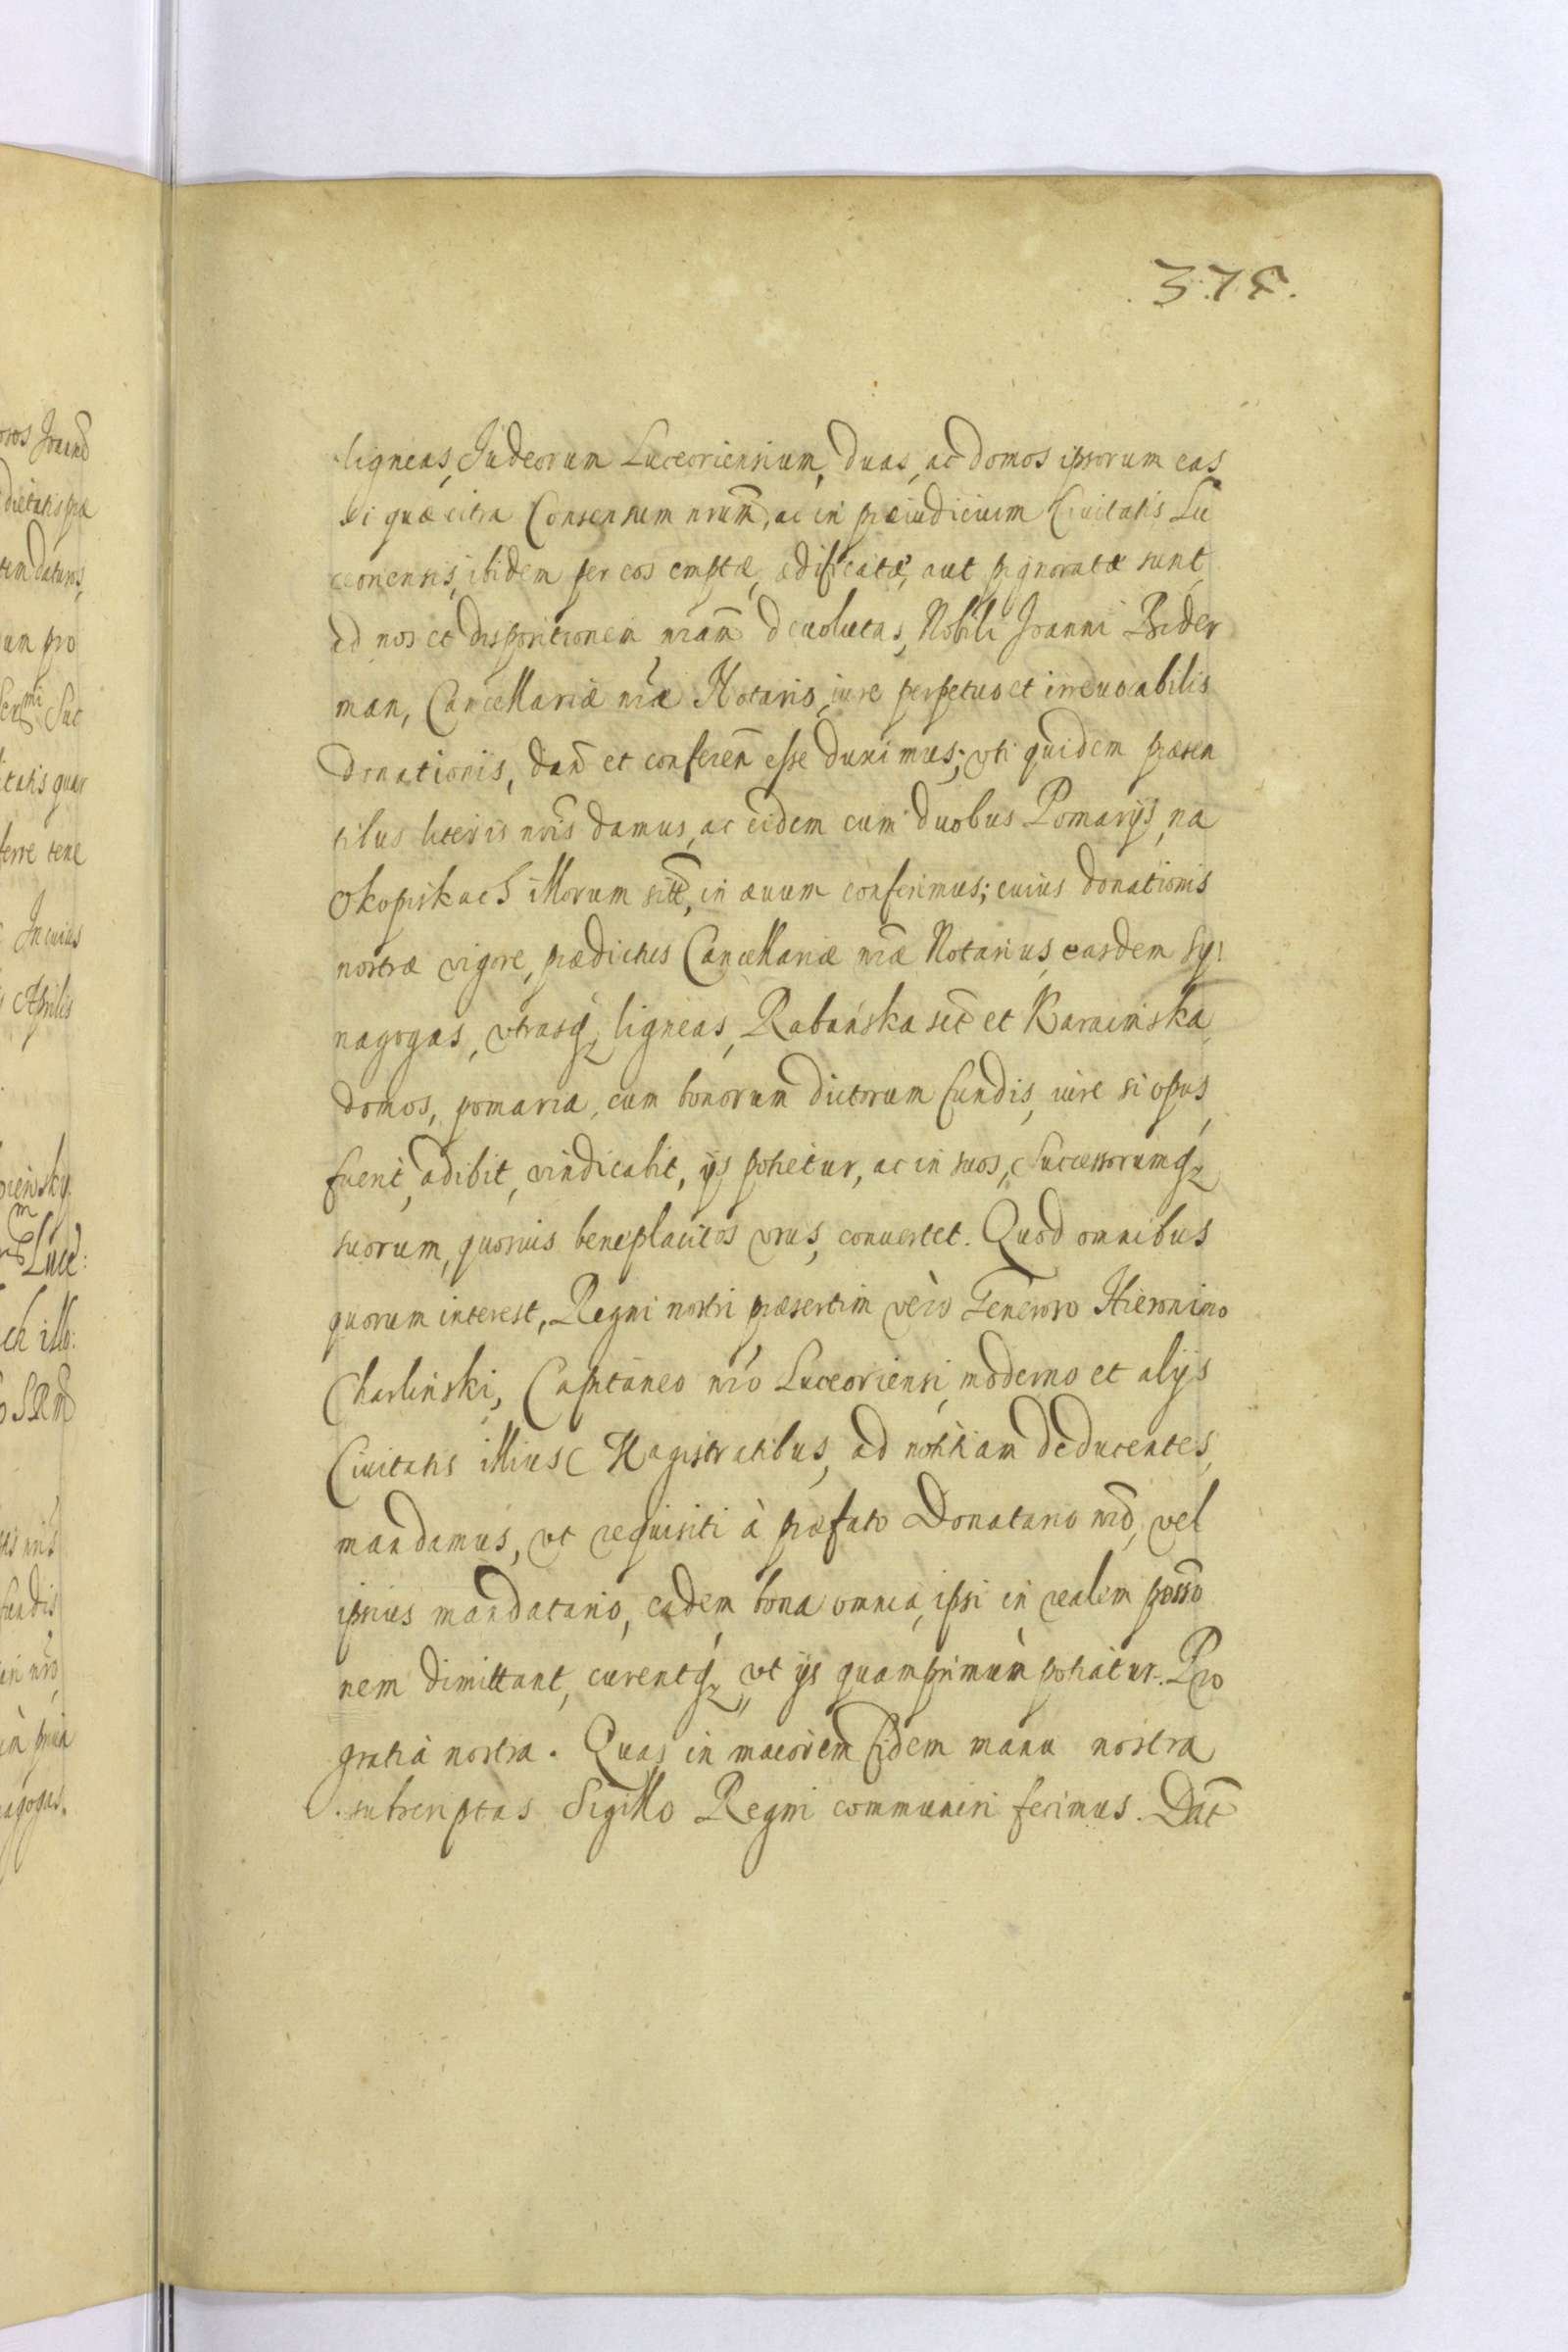 375.
ligneas, Judeorum Luceoriensium, duas, ac domos ipsorum eas
si quæ citra Consensum nrum, ac in præiudicium Ciuitatis Lu
ceoriensis, ibidem per eos emptæ, ædificatæ, aut pignoratæ sunt,
ad nos et dispositionem nram deuolutas, Nobili Joanni Bider
man, Cancellariæ nræ Notario, iure perpetuo et irreuocabilis
donationis, dan et conferen esse duximus; vti quidem præsen
tibus literis nris damus, ac eidem cum duobus Pomarijs, na
Okopiskach illorum sitt, in æuum conferimus; cuius donationis
nostræ vigore, prædictus Cancellariæ nræ Notarius, easdem Sy
nagogas, vtrasq, ligneas, Rabańska sct et Karaimska,
domos, pomaria, cum bonorum dictorum fundis, iure si opus
fuerit, adibit, vindicabit, ijs potietur, ac in suos, Successorumq
suorum, quosuis beneplacitos vsus, conuertet. Quod omnibus
quorum interest, Regni nostri præsertim verò Generoso Hieronimo
Charlinski, Capitaneo nro Luceoriensi, moderno et alijs
Ciuitatis illius Magistratibus, ad notitiam deducentes,
mandamus, vt requisiti à præfato Donatario nro, vel
ipsius mandatario, eadem bona omnia, ipsi in realem posso
nem dimittant, curentq, vt ijs quamprimum potiatur. Pro
gratia nostra. Quas in maiorem fidem manu nostra
subscriptas Sigillo Regni communiri fecimus. Dat